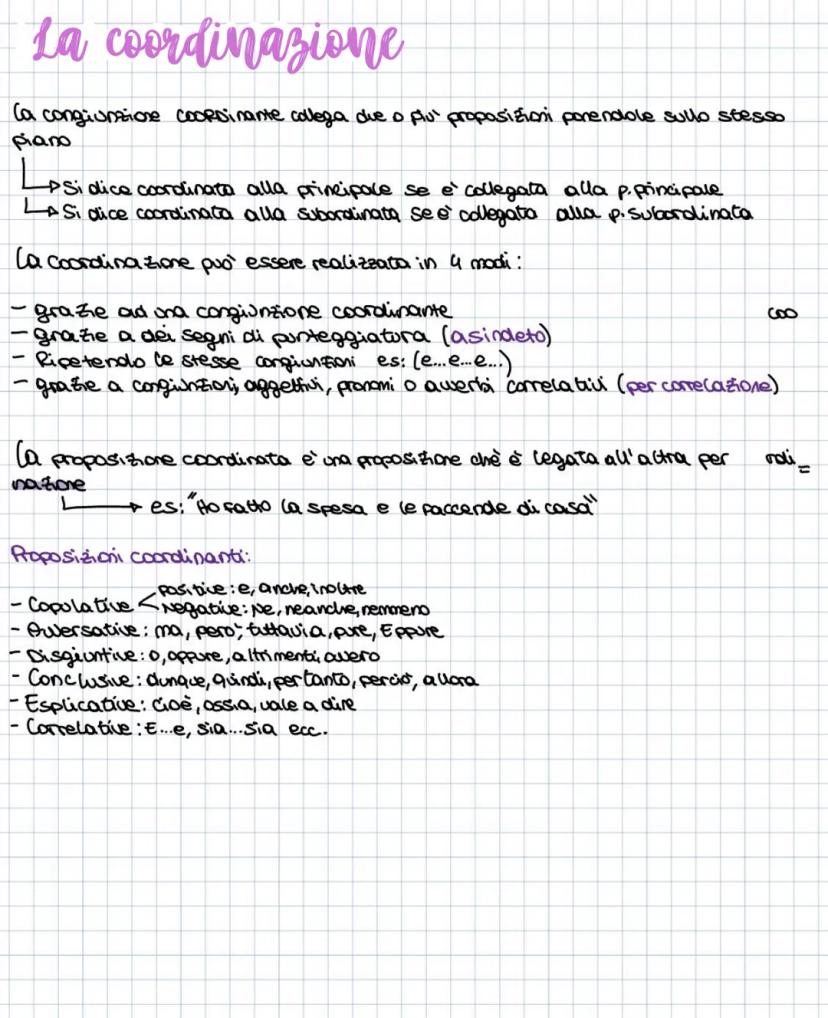 La coordinazione
La congiunzione coordinante collega due o più proposizioni ponendole sullo stesso
piano
Si dice coordinata alla principale se è collegata alla p.principale
Si dice coordinata alla subordinata se è collegata alla p.subordinata
La coordinazione può essere realizzata in 4 modi:
- grazie ad una congiunzione coordinante
coo
- grazie a dei segni di punteggiatura (asindeto)
- Ripetendo le stesse congiunzioni es: (e...e...e...)
- grazie a congiunzioni, aggettivi, pronomi o avverbi correlativi (per correlazione)
La proposizione coordinata è una proposizione chè è legata all'altra per rdi=
nazione
es: "Ho fatto la spesa e le faccende di casa"
Proposizioni coordinanti:
- Copulative < positive: e, anche, inoltre
Negative: ne, neanche, nemmeno
- Avversative: ma, però, tuttavia, pure, Eppure
- Disgiuntive: o, oppure, altrimenti, ovvero
- Conclusive: dunque, quindi, pertanto, perciò, allora
- Esplicative: cioè, ossia, vale a dire
- Correlative: E...e, sia...sia ecc.